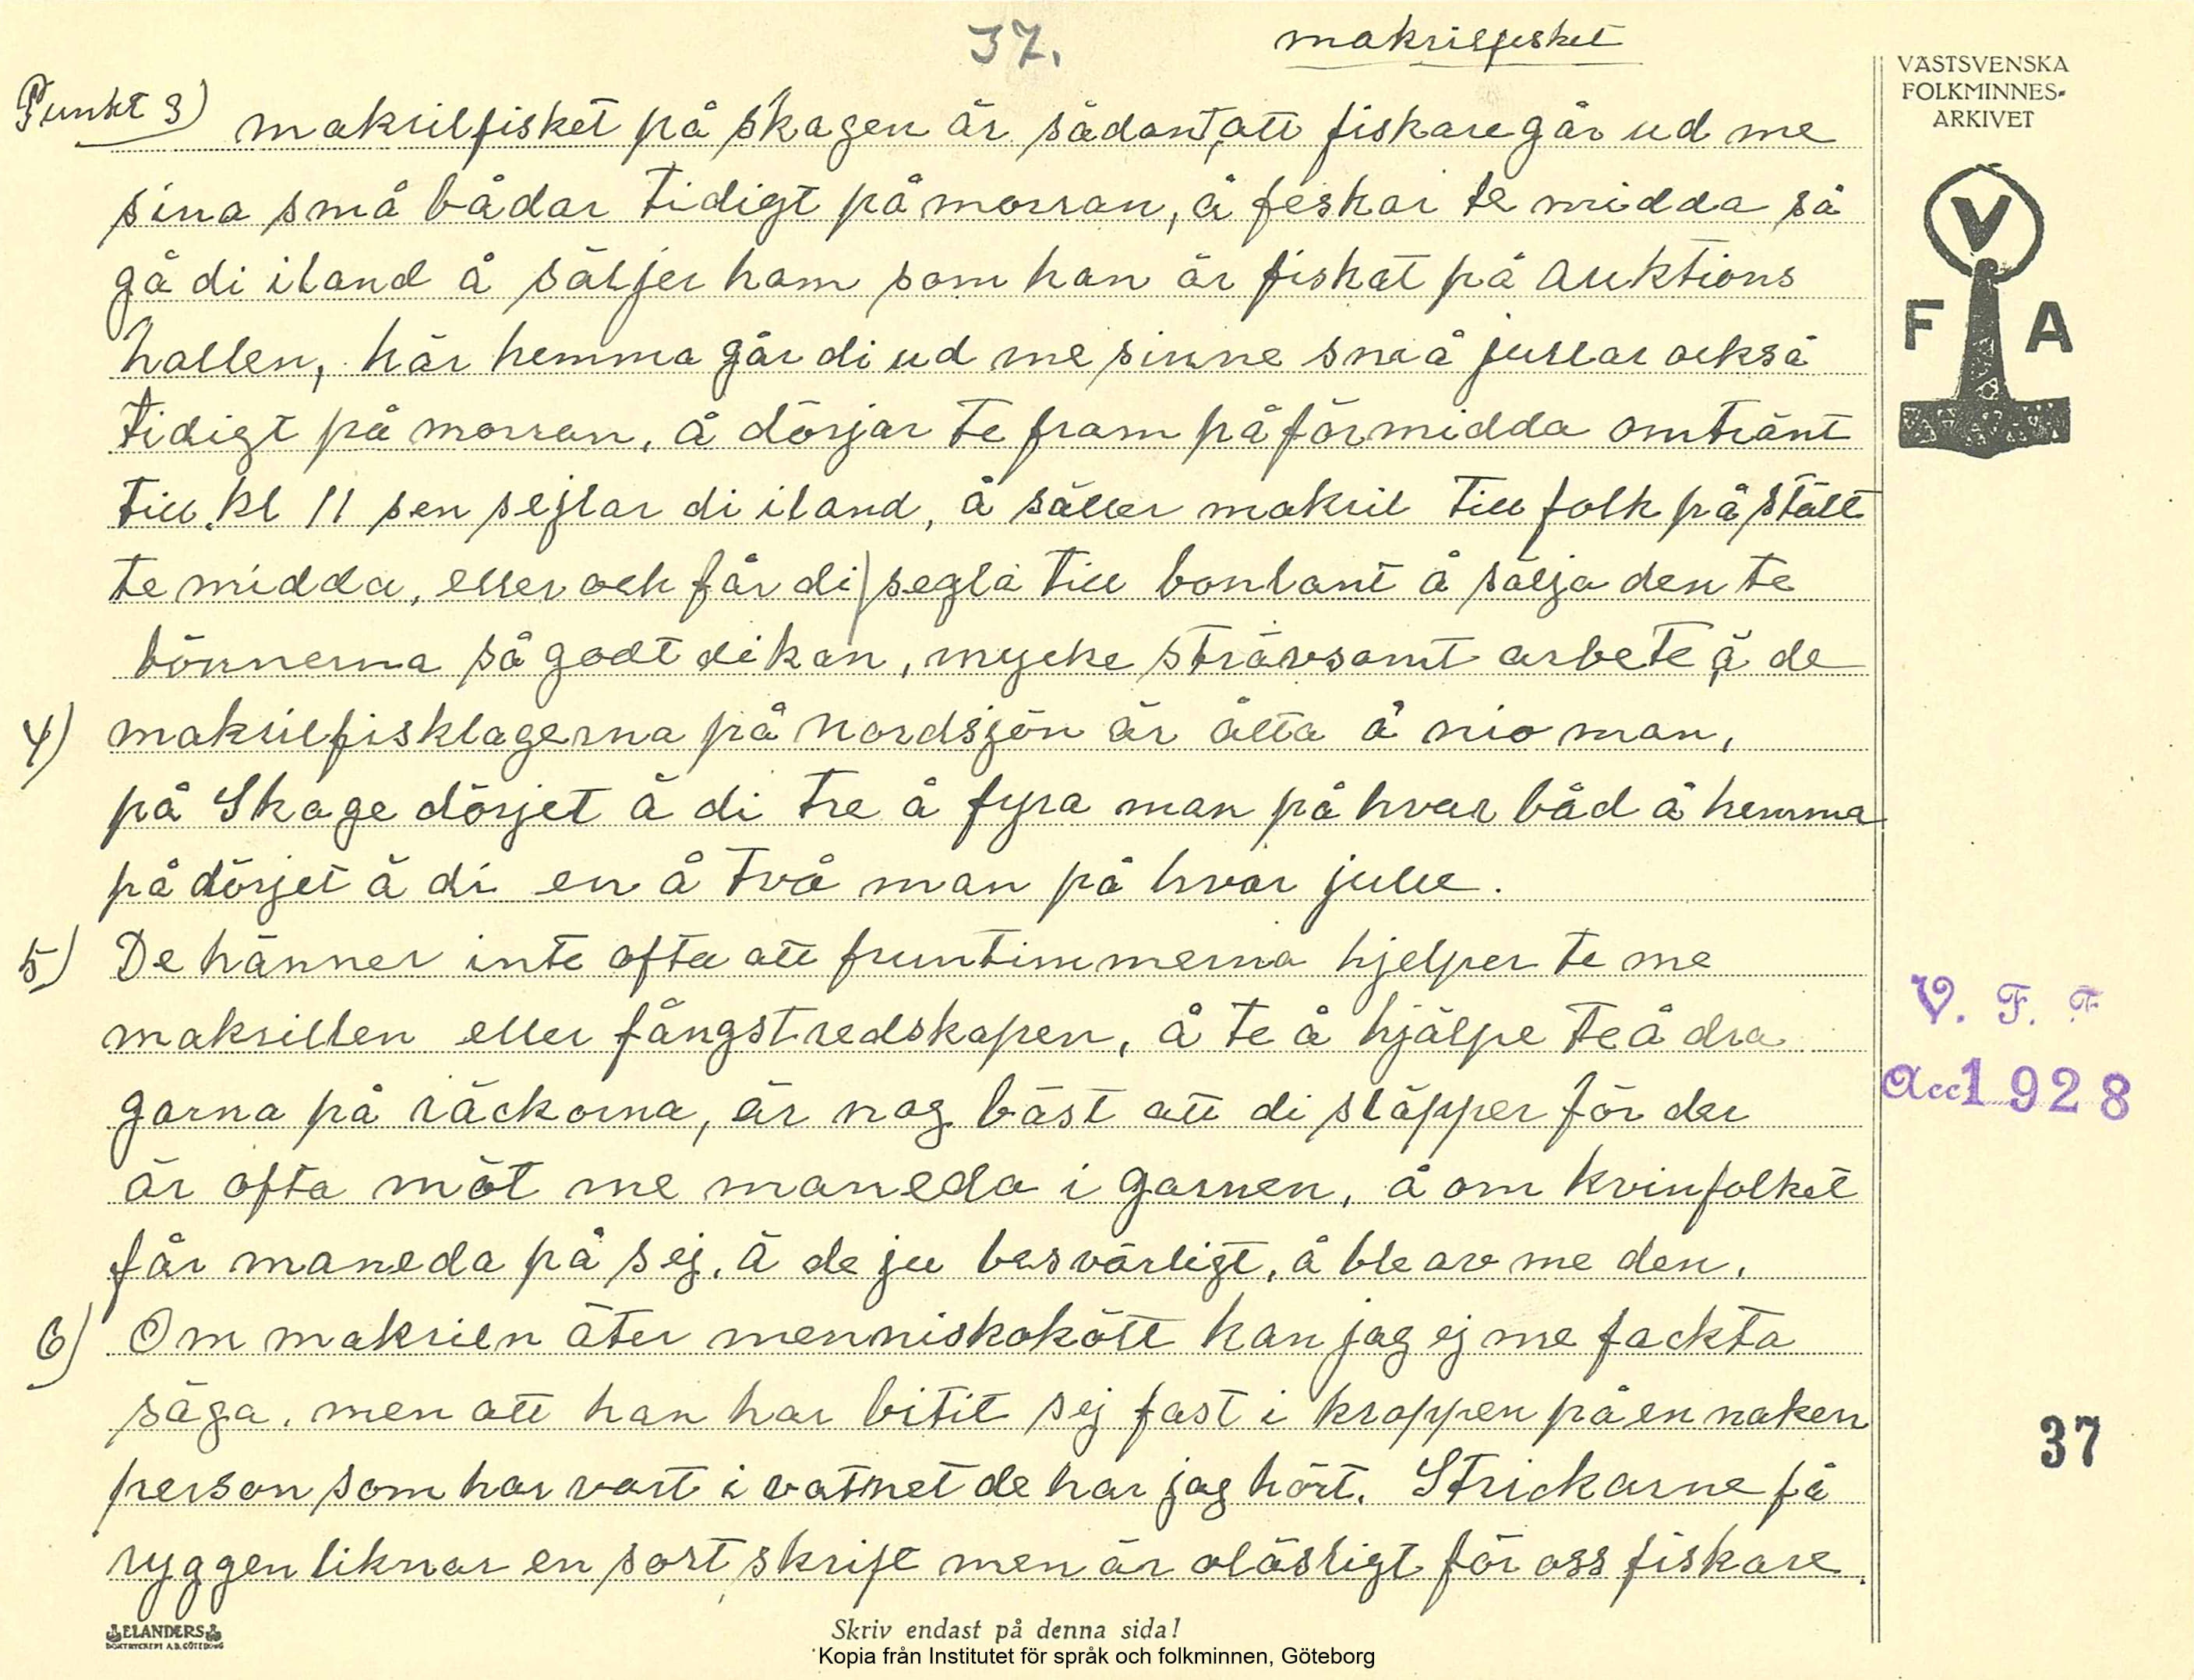 37.
makrillfisket
VÄSTSVENSKA
FOLKMINNES-
ARKIVET
Punkt 3) makrilfisket på skagen är sådant, att fiskare går ud me
sina små bådar tidigt på morran, å feskar te midda så
gå di iland å säljer ham som han är fiskat på Auktions
hallen, här hemma går di ud me sinne små jullar också
tidigt på morran, å dörjar te fram på förmidda omtränt
till kl 11 sen sejlar di iland, å säller makril till folk på ställ
te midda, eller och får di segla till bonlant å sälja den te
bönnerna så godt di kan, mycke strävsamt arbete ä de
4) makrilfisklagerna på Nordsjön är åtta å nio man,
på Skage dörjet ä di tre å fyra man på hvar båd å hemma
på dörjet ä di en å två man på hvar julle.
5) De hänner inte ofta att fruntimmerna hjelper te me
makrillen eller fångstredskapen, å te å hjälpe te å dra
garna på räckorna, är nog bäst att di släpper för der
är ofta möt me maneda i garnen, å om kvinfolket
får maneda på sej, ä de ju besvärligt, å ble av me den.
6) Om makriln äter menniskokött kan jag ej me fackta
säga, men att han har bitit sej fast i kroppen på en naken
person som har vart i vattnet de har jag hört. Strickarne på
ryggen liknar en sort skrift men är oläsligt för oss fiskare.
V
F A
V. F. F
Acc 1928
37
ELANDERS
BOKTRYCKERI A.B. GÖTEBORG
Skriv endast på denna sida!
Kopia från Institutet för språk och folkminnen, Göteborg